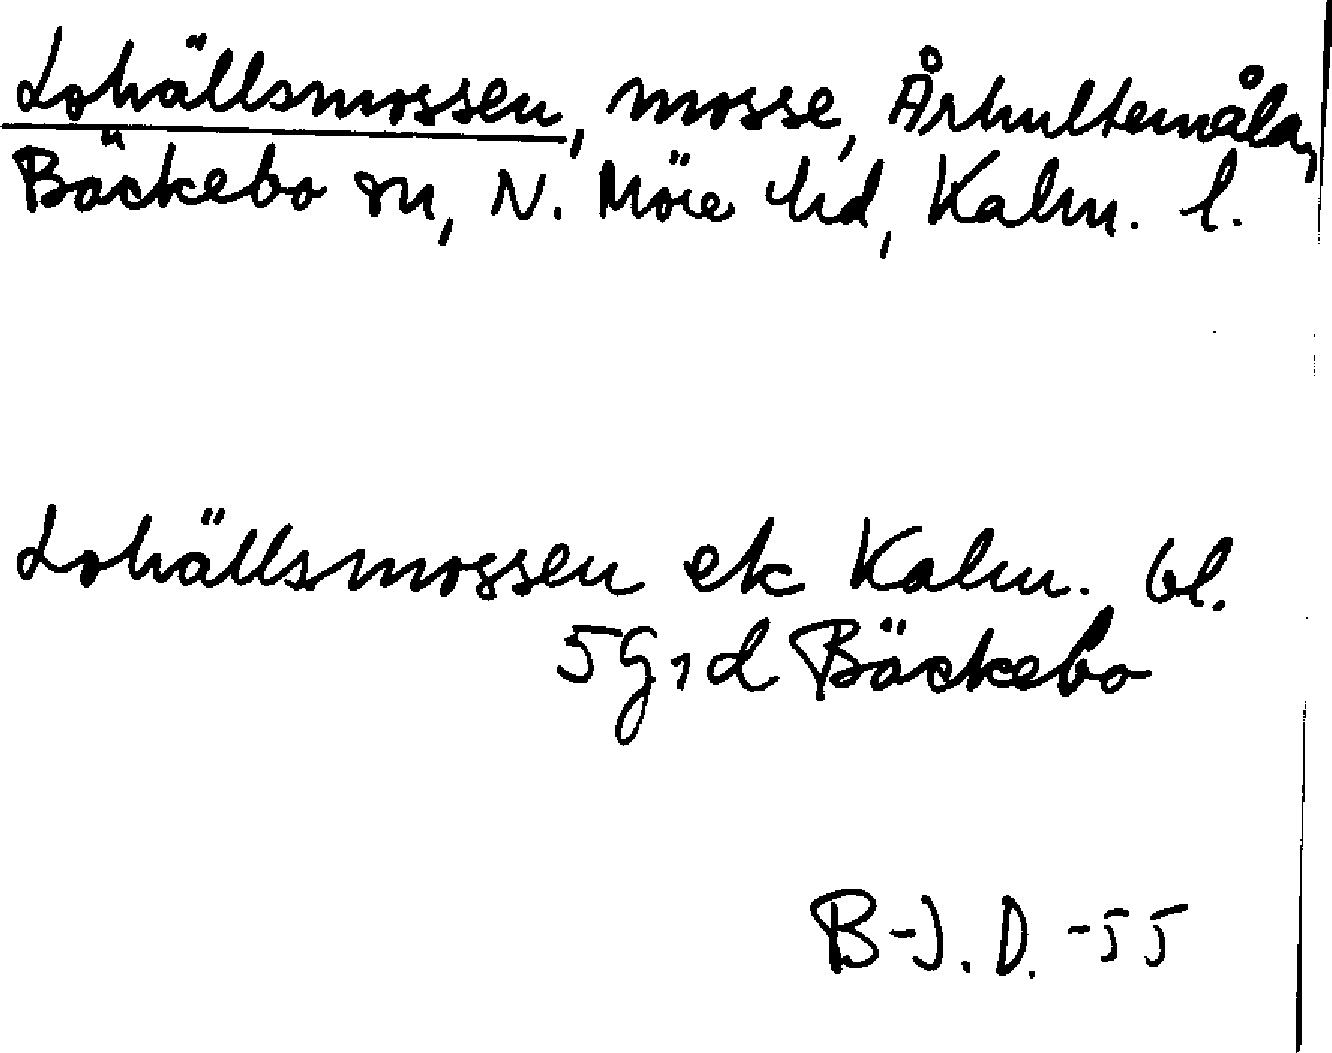 Lohällsmossen, mosse, Århultemåla,
Bäckebo sn, N. Möre hd, Kalm. l.
Lohällsmossen ek Kalm. bl.
5 G, d Bäckebo
B-J. D. -55